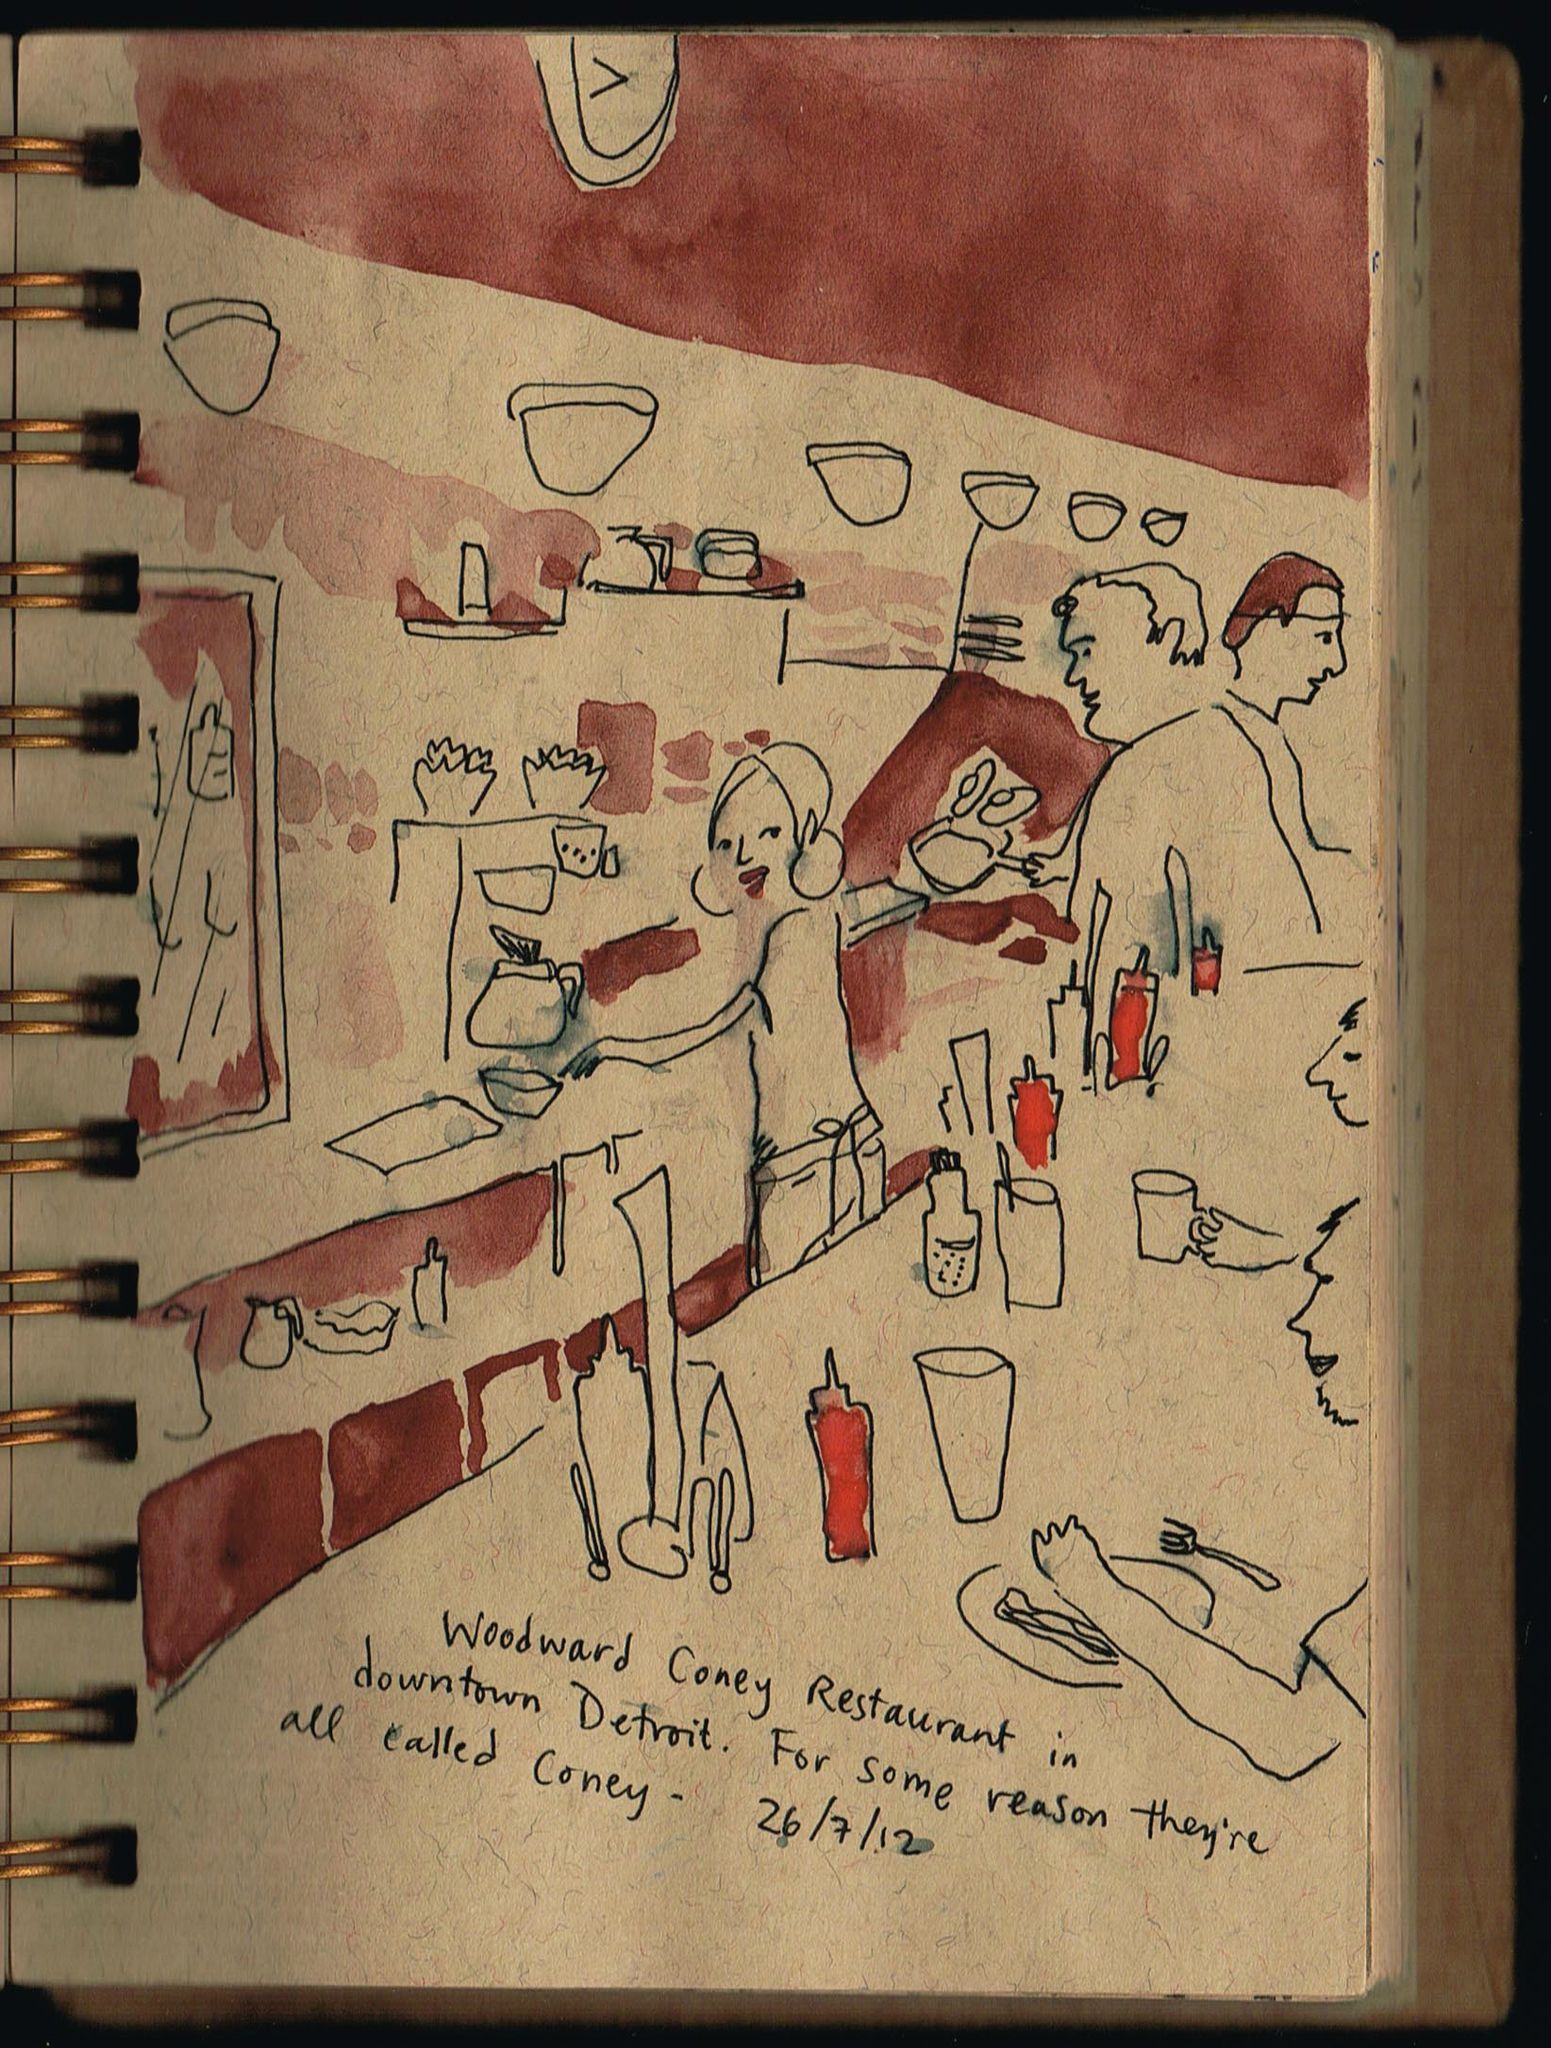 Woodward Coney Restaurant in
downtown Detroit. For some reason they're
all called Coney -
26/7/12